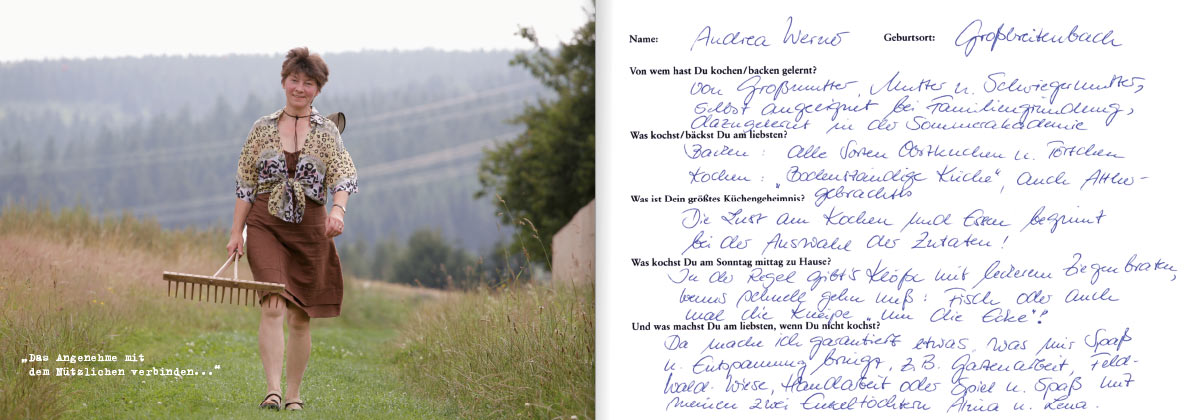 „Das Angenehme mit
dem Nützlichen verbinden..."
Name: Andrea Werno Geburtsort: Großbreitenbach
Von wem hast Du kochen/backen gelernt?
von Großmutter, Mutter u. Schwiegermutter,
selbst angeeignet bei Familiengründung,
dazugelernt in der Sommerakademie
Was kochst/bäckst Du am liebsten?
Backen: alle Sorten Obstkuchen u. Törtchen
Kochen: „Bodenständige Küche", auch Alther-
gebrachtes
Was ist Dein größtes Küchengeheimnis?
Die Lust am Kochen und Essen beginnt
bei der Auswahl der Zutaten!
Was kochst Du am Sonntag mittag zu Hause?
In der Regel gibt's Klöße mit leckerem Ziegenbraten,
wenns schnell gehn muß: Fisch oder auch
mal die Kneipe „um die Ecke"!
Und was machst Du am liebsten, wenn Du nicht kochst?
Da mache ich garantiert etwas, was mir Spaß
u. Entspannung bringt, z.B. Gartenarbeit, Feld-
Wald- Wiese, Handarbeit oder Spiel u. Spaß mit
meinen zwei Enkeltöchtern u. Lena.